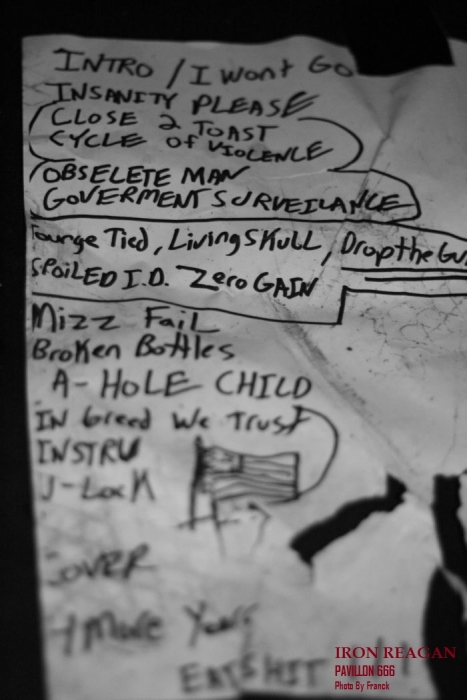 INTRO / I Wont Go
INSANITY PLEASE
CLOSE 2 TOAST
CYCLE of VIOLENCE
OBSELETE MAN
GOVERMENT SURVEILANCE
Tounge Tied, Living SKULL, Drop the Gu
SPOILED I.D. Zero GAIN
Mizz FaiL
Broken Bottles
A-HOLE CHILD
IN Greed We Trust
INSTRU
J-LocK
COVER
4 More Years
EATSHIT
IRON REAGAN
PAVILLON 666
Photo By Franck